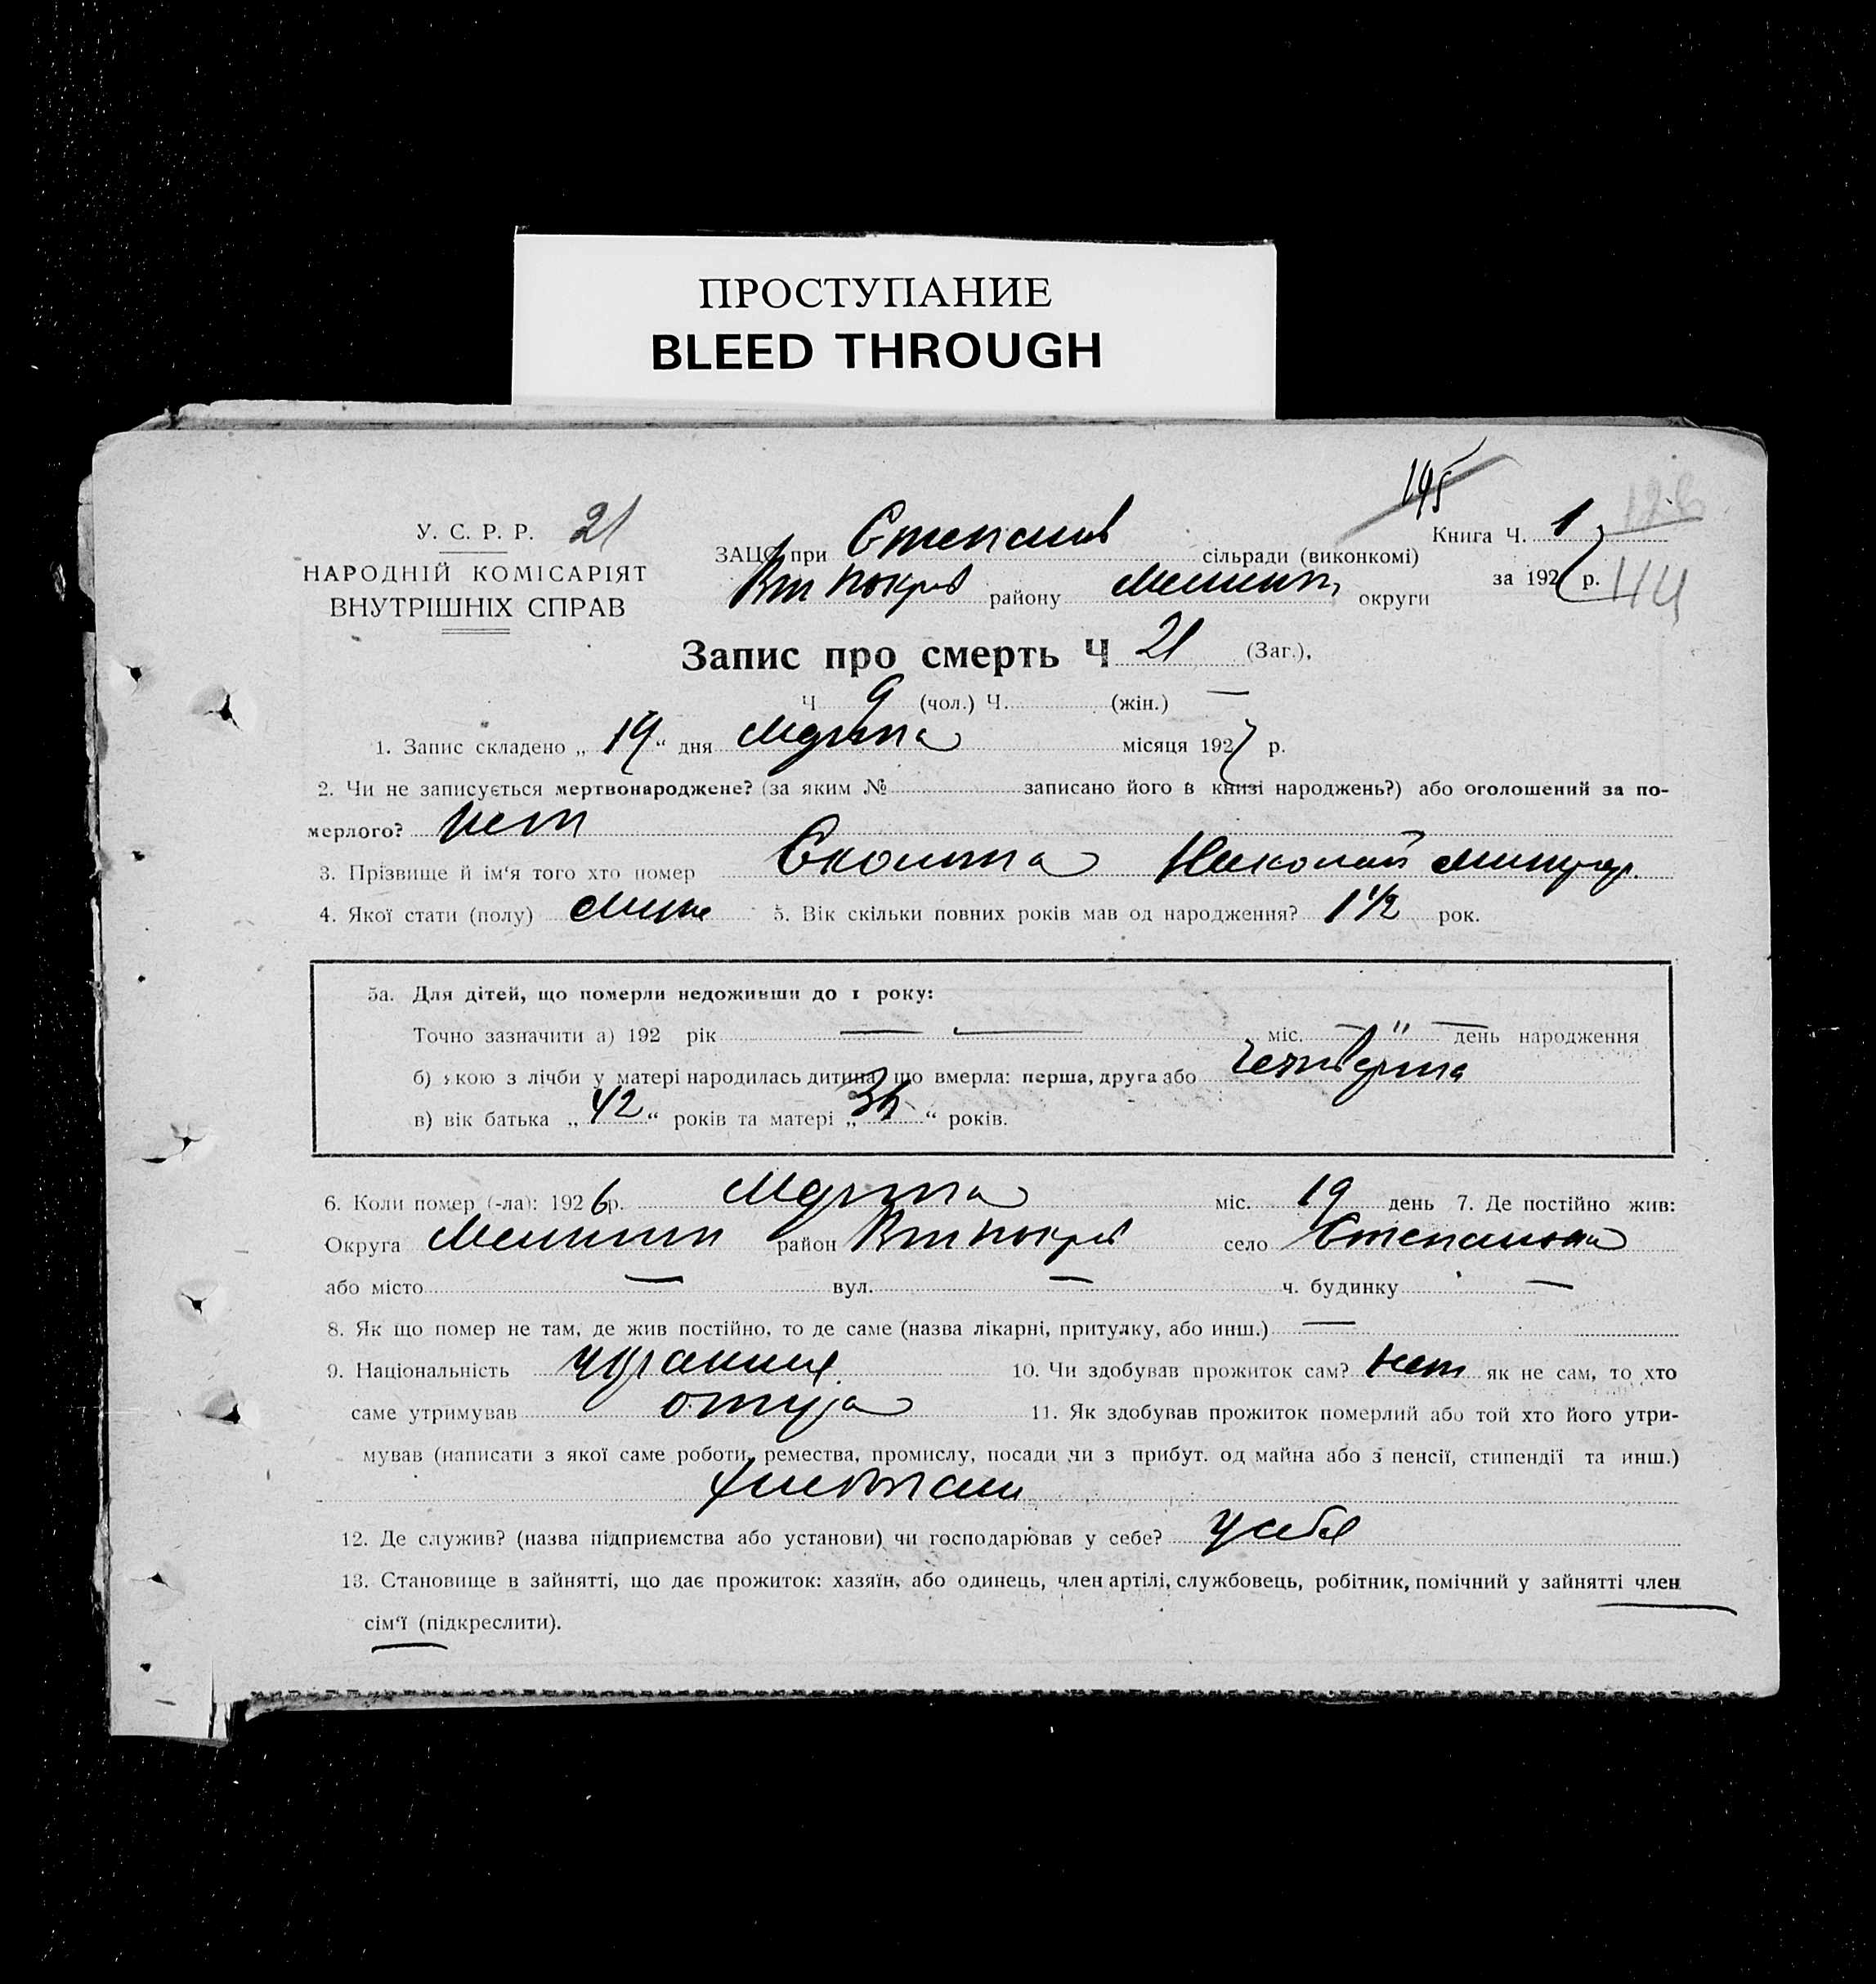 ПРОСТУПАНИЕ
BLEED THROUGH
195
У. С. Р. Р. 21
Книга Ч. 1
НАРОДНІЙ КОМІСАРІЯТ
ВНУТРІШНІХ СПРАВ
ЗАЦС при Степанів сільради (виконкомі)
району округи
за 1927 р.
Запис про смерть Ч 21 (Заг.),
Ч 9 (чол.) Ч. (жін.) —
1. Запис складено „ 19 “ дня Марта місяця 1927 р.
2. Чи не записується мертвонароджене? (за яким № записано його в книзі народжень?) або оголошений за по-
мерлого? нет
3. Прізвище й ім‘я того хто помер Николай
4. Якої стати (полу) 5. Вік скільки повних років мав од народження? 1 1/2 рок.
5а. Для дітей, що померли недоживши до 1 року:
Точно зазначити а) 192 рік — — міс. — " — день народження
б) якою з лічби у матері народилась дитина, що вмерла: перша, друга або
в) вік батька „ 42 “ років та матері „ “ років.
6. Коли помер (-ла): 1926 р. Марта міс. 19 день 7. Де постійно жив:
Округа район село Степановка
або місто — вул. — ч. будинку —
8. Як що помер не там, де жив постійно, то де саме (назва лікарні, притулку, або инш.) —
9. Національність 10. Чи здобував прожиток сам? нет як не сам, то хто
саме утримував отца 11. Як здобував прожиток померлий або той хто його утри-
мував (написати з якої саме роботи, ремества, промислу, посади чи з прибут. од майна або з пенсії, стипендії та инш.)
12. Де служив? (назва підприємства або установи) чи господарював у себе? у себя
13. Становище в зайнятті, що дає прожиток: хазяїн, або одинець, член артілі, службовець, робітник, помічний у зайнятті член
сім‘ї (підкреслити).